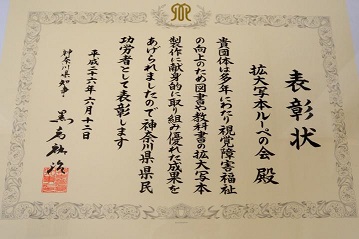 表彰状
拡大写本ルーペの会 殿
貴団体は多年にわたり視覚障害福祉
の向上のため図書や教科書の拡大写本
製作に献身的に取り組み優れた成果を
あげられましたので神奈川県県民
功労者として表彰します
平成二十六年六月十二日
神奈川県知事 黒岩祐治